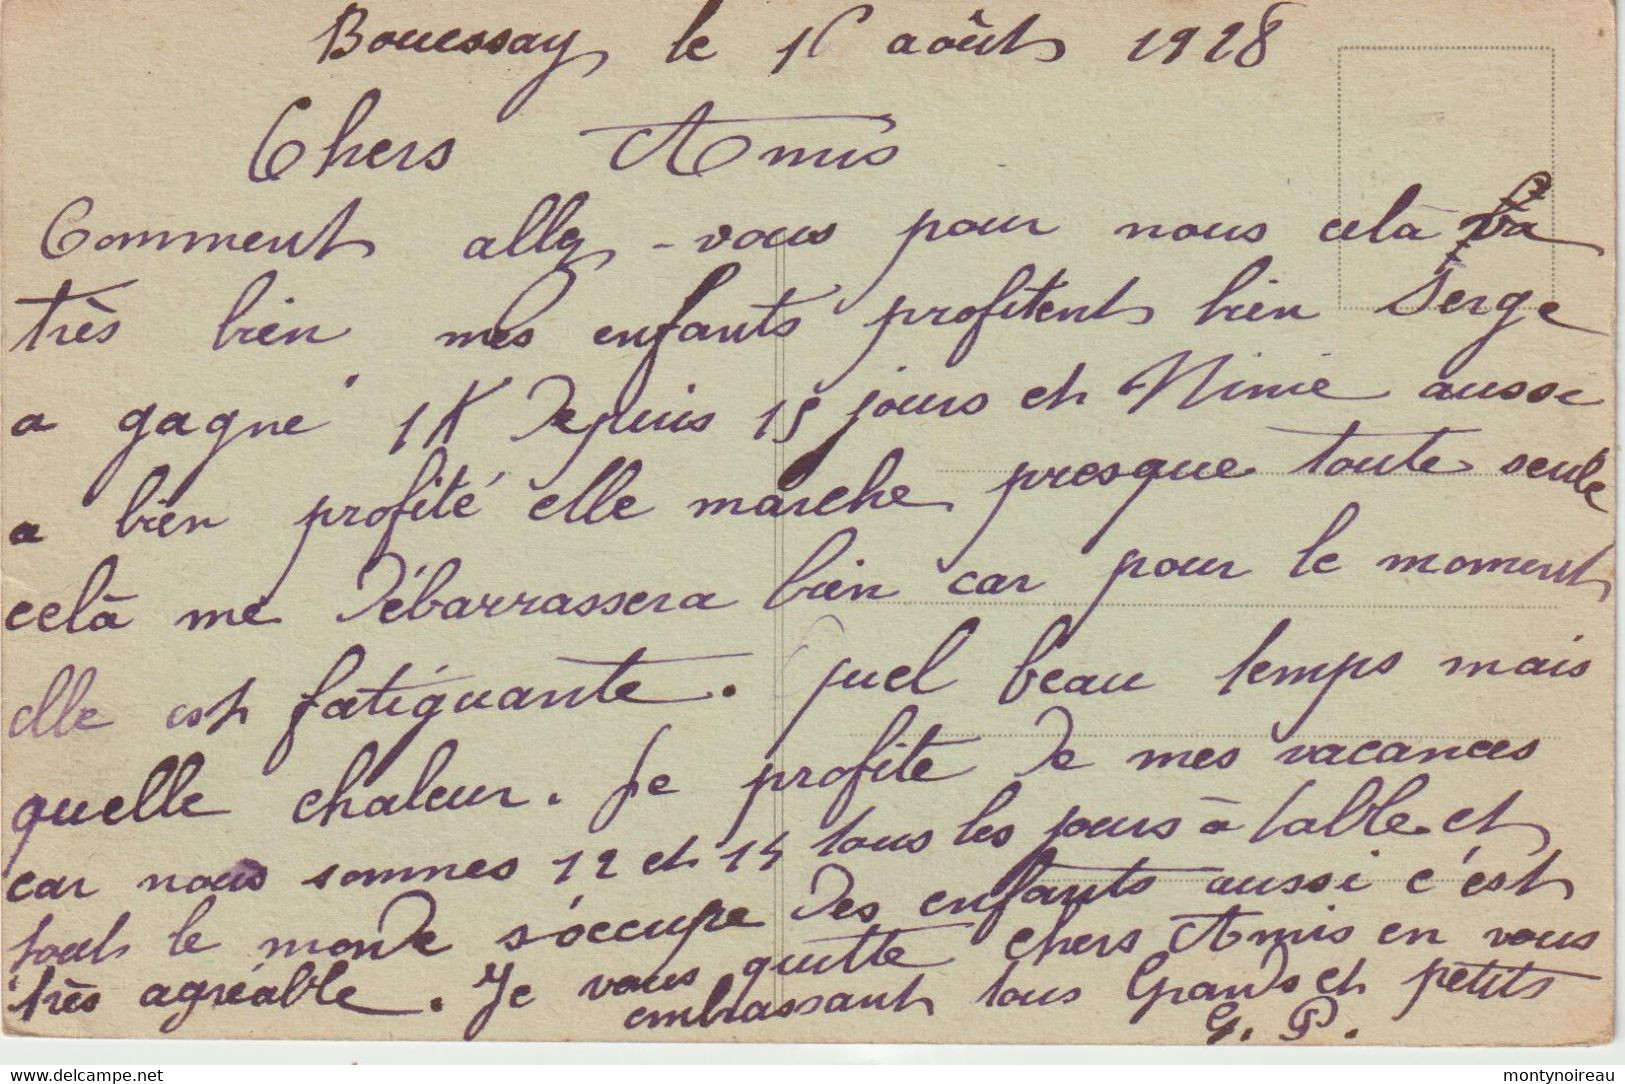 Bouessay le 16 août 1928
Chers Amis
Comment allez-vous pour nous celà va
très bien mes enfants profitent bien Serge
a gagné 1K depuis 15 jours et Ninie aussi
a bien profité elle marche presque toute seule
celà me débarrassera bien car pour le moment
elle est fatiguante. Quel beau temps mais
quelle chaleur. Je profite de mes vacances
car nous sommes 12 et 14 tous les jours à table et
tout le monde s'occupe des enfants aussi c'est
très agréable. Je vous quitte chers Amis en vous
embrassant tous Grands et petits
G. P.
www.delcampe.net
montynoireau